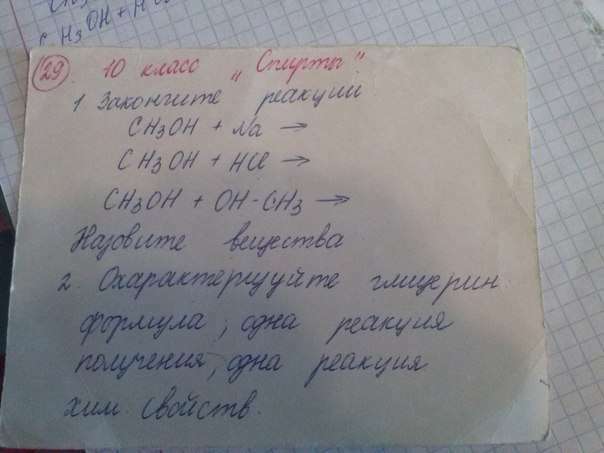 CH3OH + HC
29. 10 класс „Спирты"
1 Закончите реакций
CH3OH + Na →
CH3OH + HCl →
CH3OH + OH-CH3 →
Назовите вещества
2. Охарактеризуйте глицерин
формула, одна реакция
получения, одна реакция
хим. свойств.